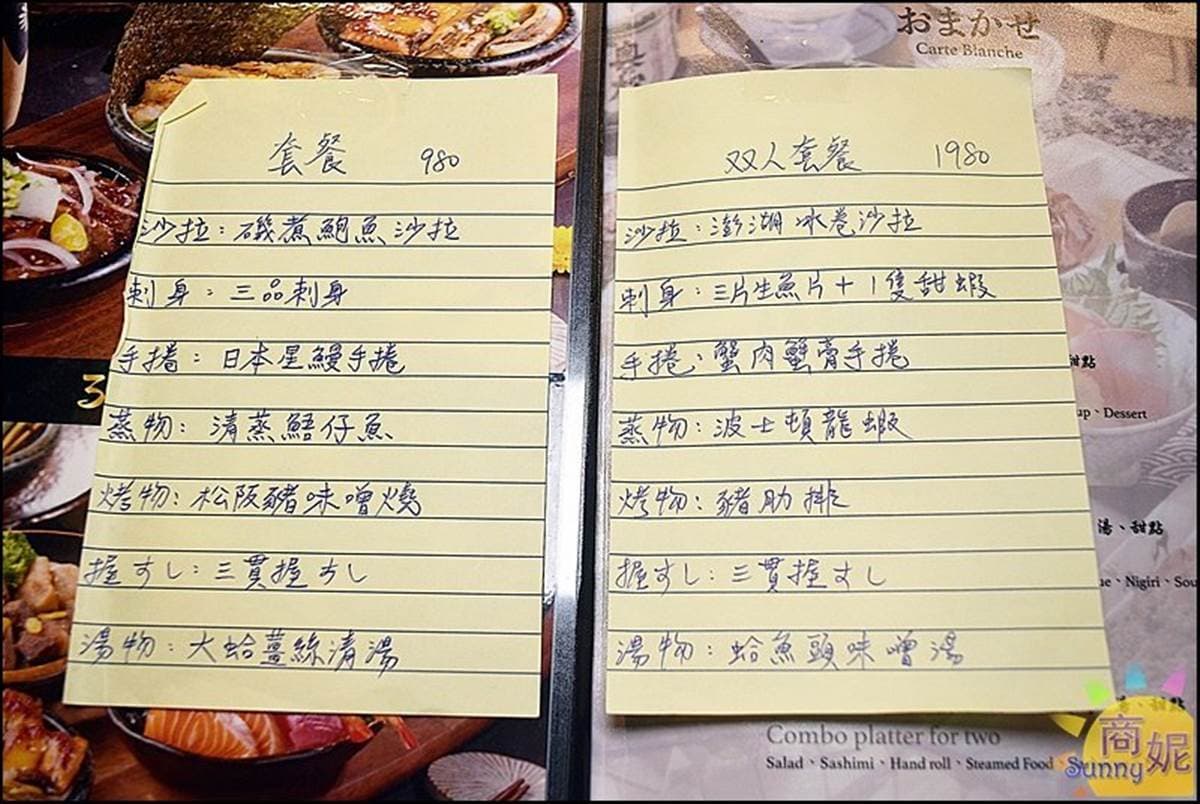 套餐 980
沙拉：磯煮鮑魚沙拉
刺身：三品刺身
手捲：日本星鰻手捲
蒸物：清蒸鯃仔魚
烤物：松阪豬味噌燒
握すし：三貫握すし
湯物：大蛤薑絲清湯
おまかせ
Carte Blanche
双人套餐 1980
沙拉：澎湖冰卷沙拉
刺身：三片生魚片+1隻甜蝦
手捲：蟹肉蟹膏手捲
蒸物：波士頓龍蝦
烤物：豬肋排
握すし：三貫握すし
湯物：蛤魚頭味噌湯
甜點
up、Dessert
湯、甜點
ue、Nigiri、Sou
Combo platter for two
Salad、Sashimi、Hand roll、Steamed Food
、甜點
商妮
Sunny